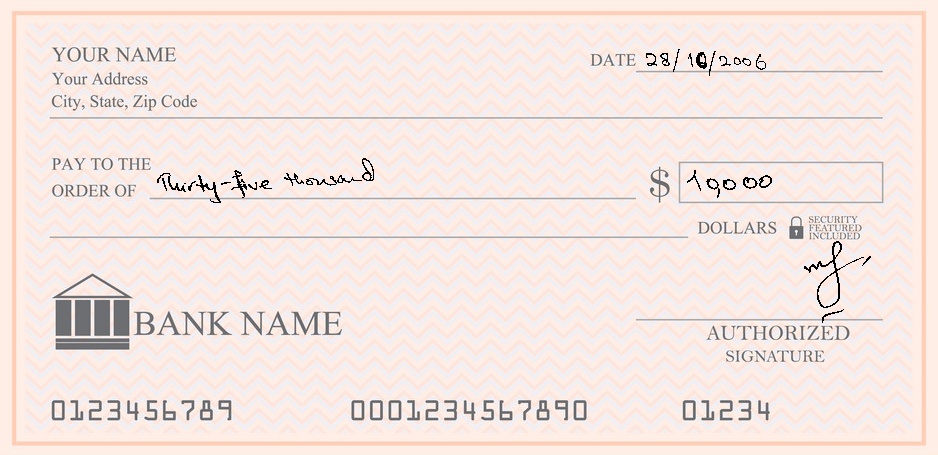 YOUR NAME
Your Address
City, State, Zip Code
DATE 28/10/2006
PAY TO THE
ORDER OF Thirty-five thousand
$ 19000
DOLLARS
SECURITY
FEATURED
INCLUDED
BANK NAME
AUTHORIZED
SIGNATURE
0123456789 0001234567890 01234